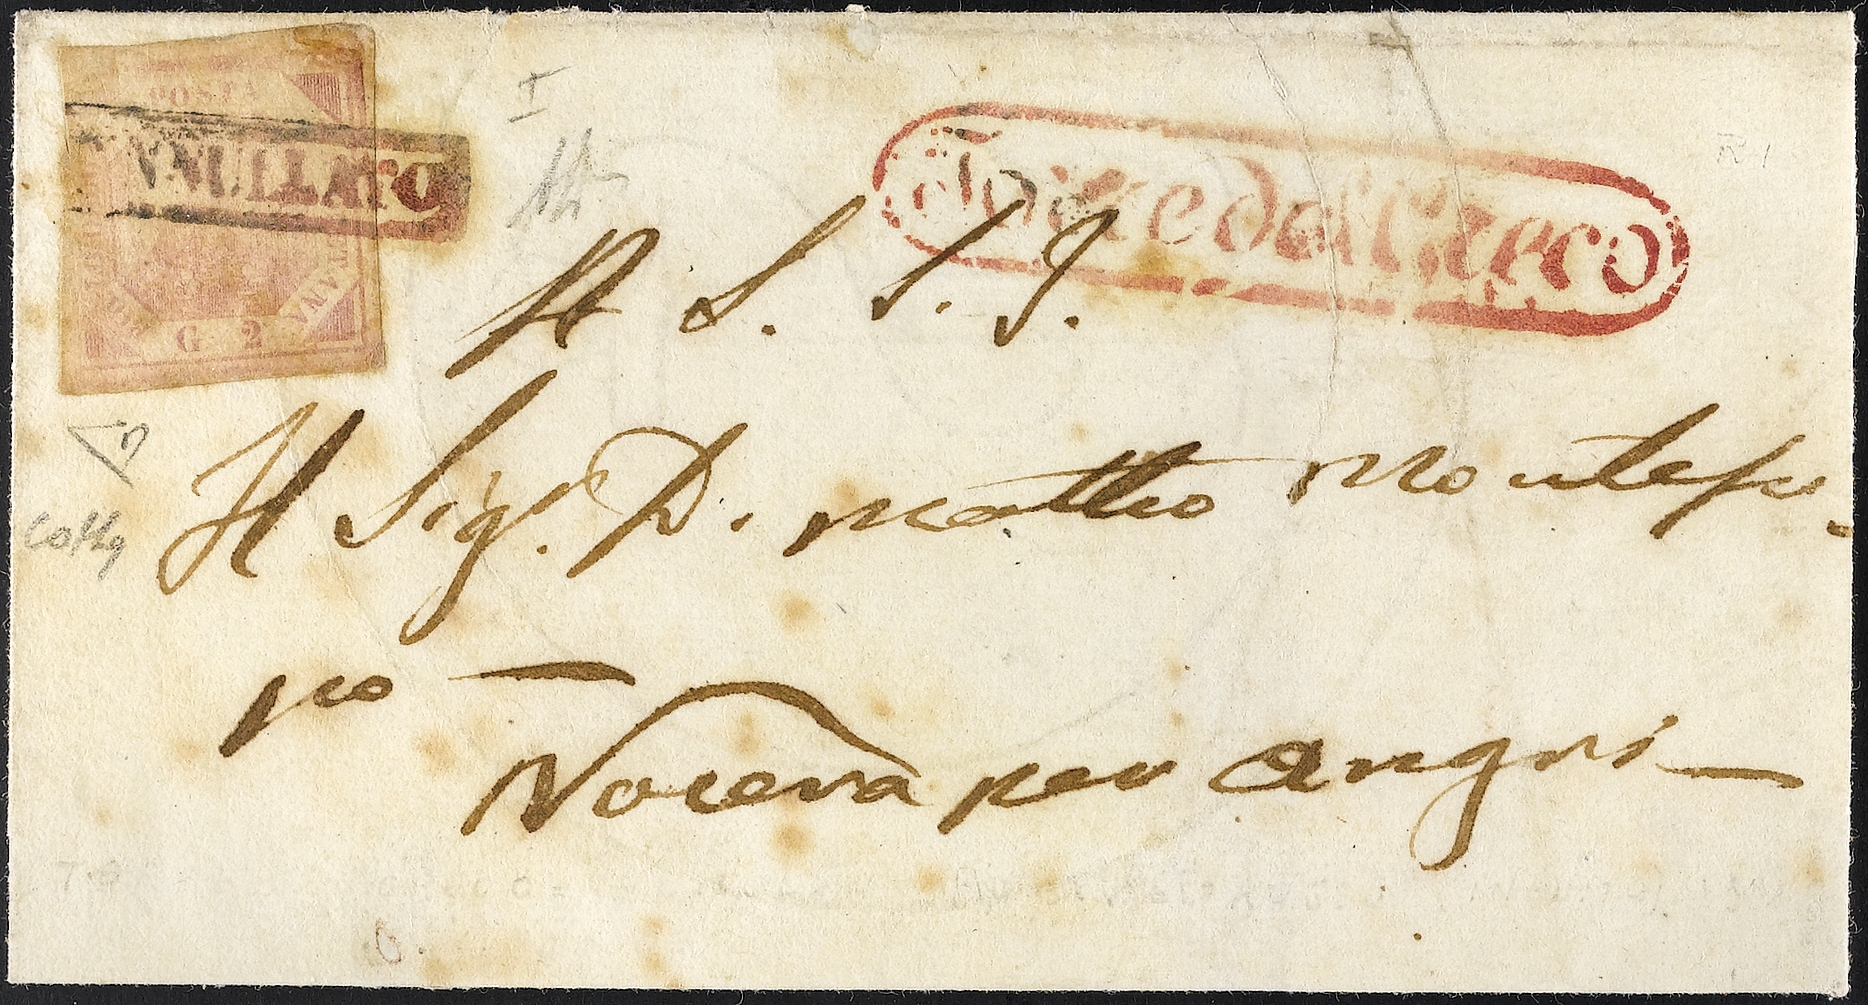 POSTA
ANNULLATO
G. 2
Torre del Greco
A S. S. I.
Il Sig.r D. Matteo Montefu-
sco
Nocera per Angri